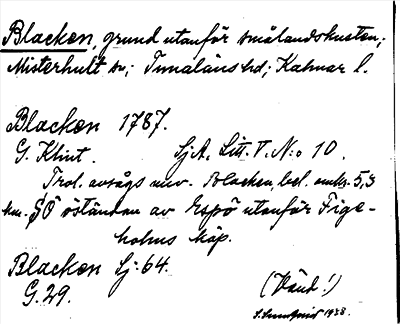 Blacken, grund utanför smålandskusten;
Misterhult sn; Tunaläns hd; Kalmar l.
Blacken 1787.
G. Klint. SjA, Litt. V. N:o 10.
Trol. avsågs nuv. Blacken, bel. omkr. 5,3
km. SÖ öständan av Espö utanför Fige-
holms köp.
Blacken Sj: 64.
G. 29. (Vänd!)
1938.